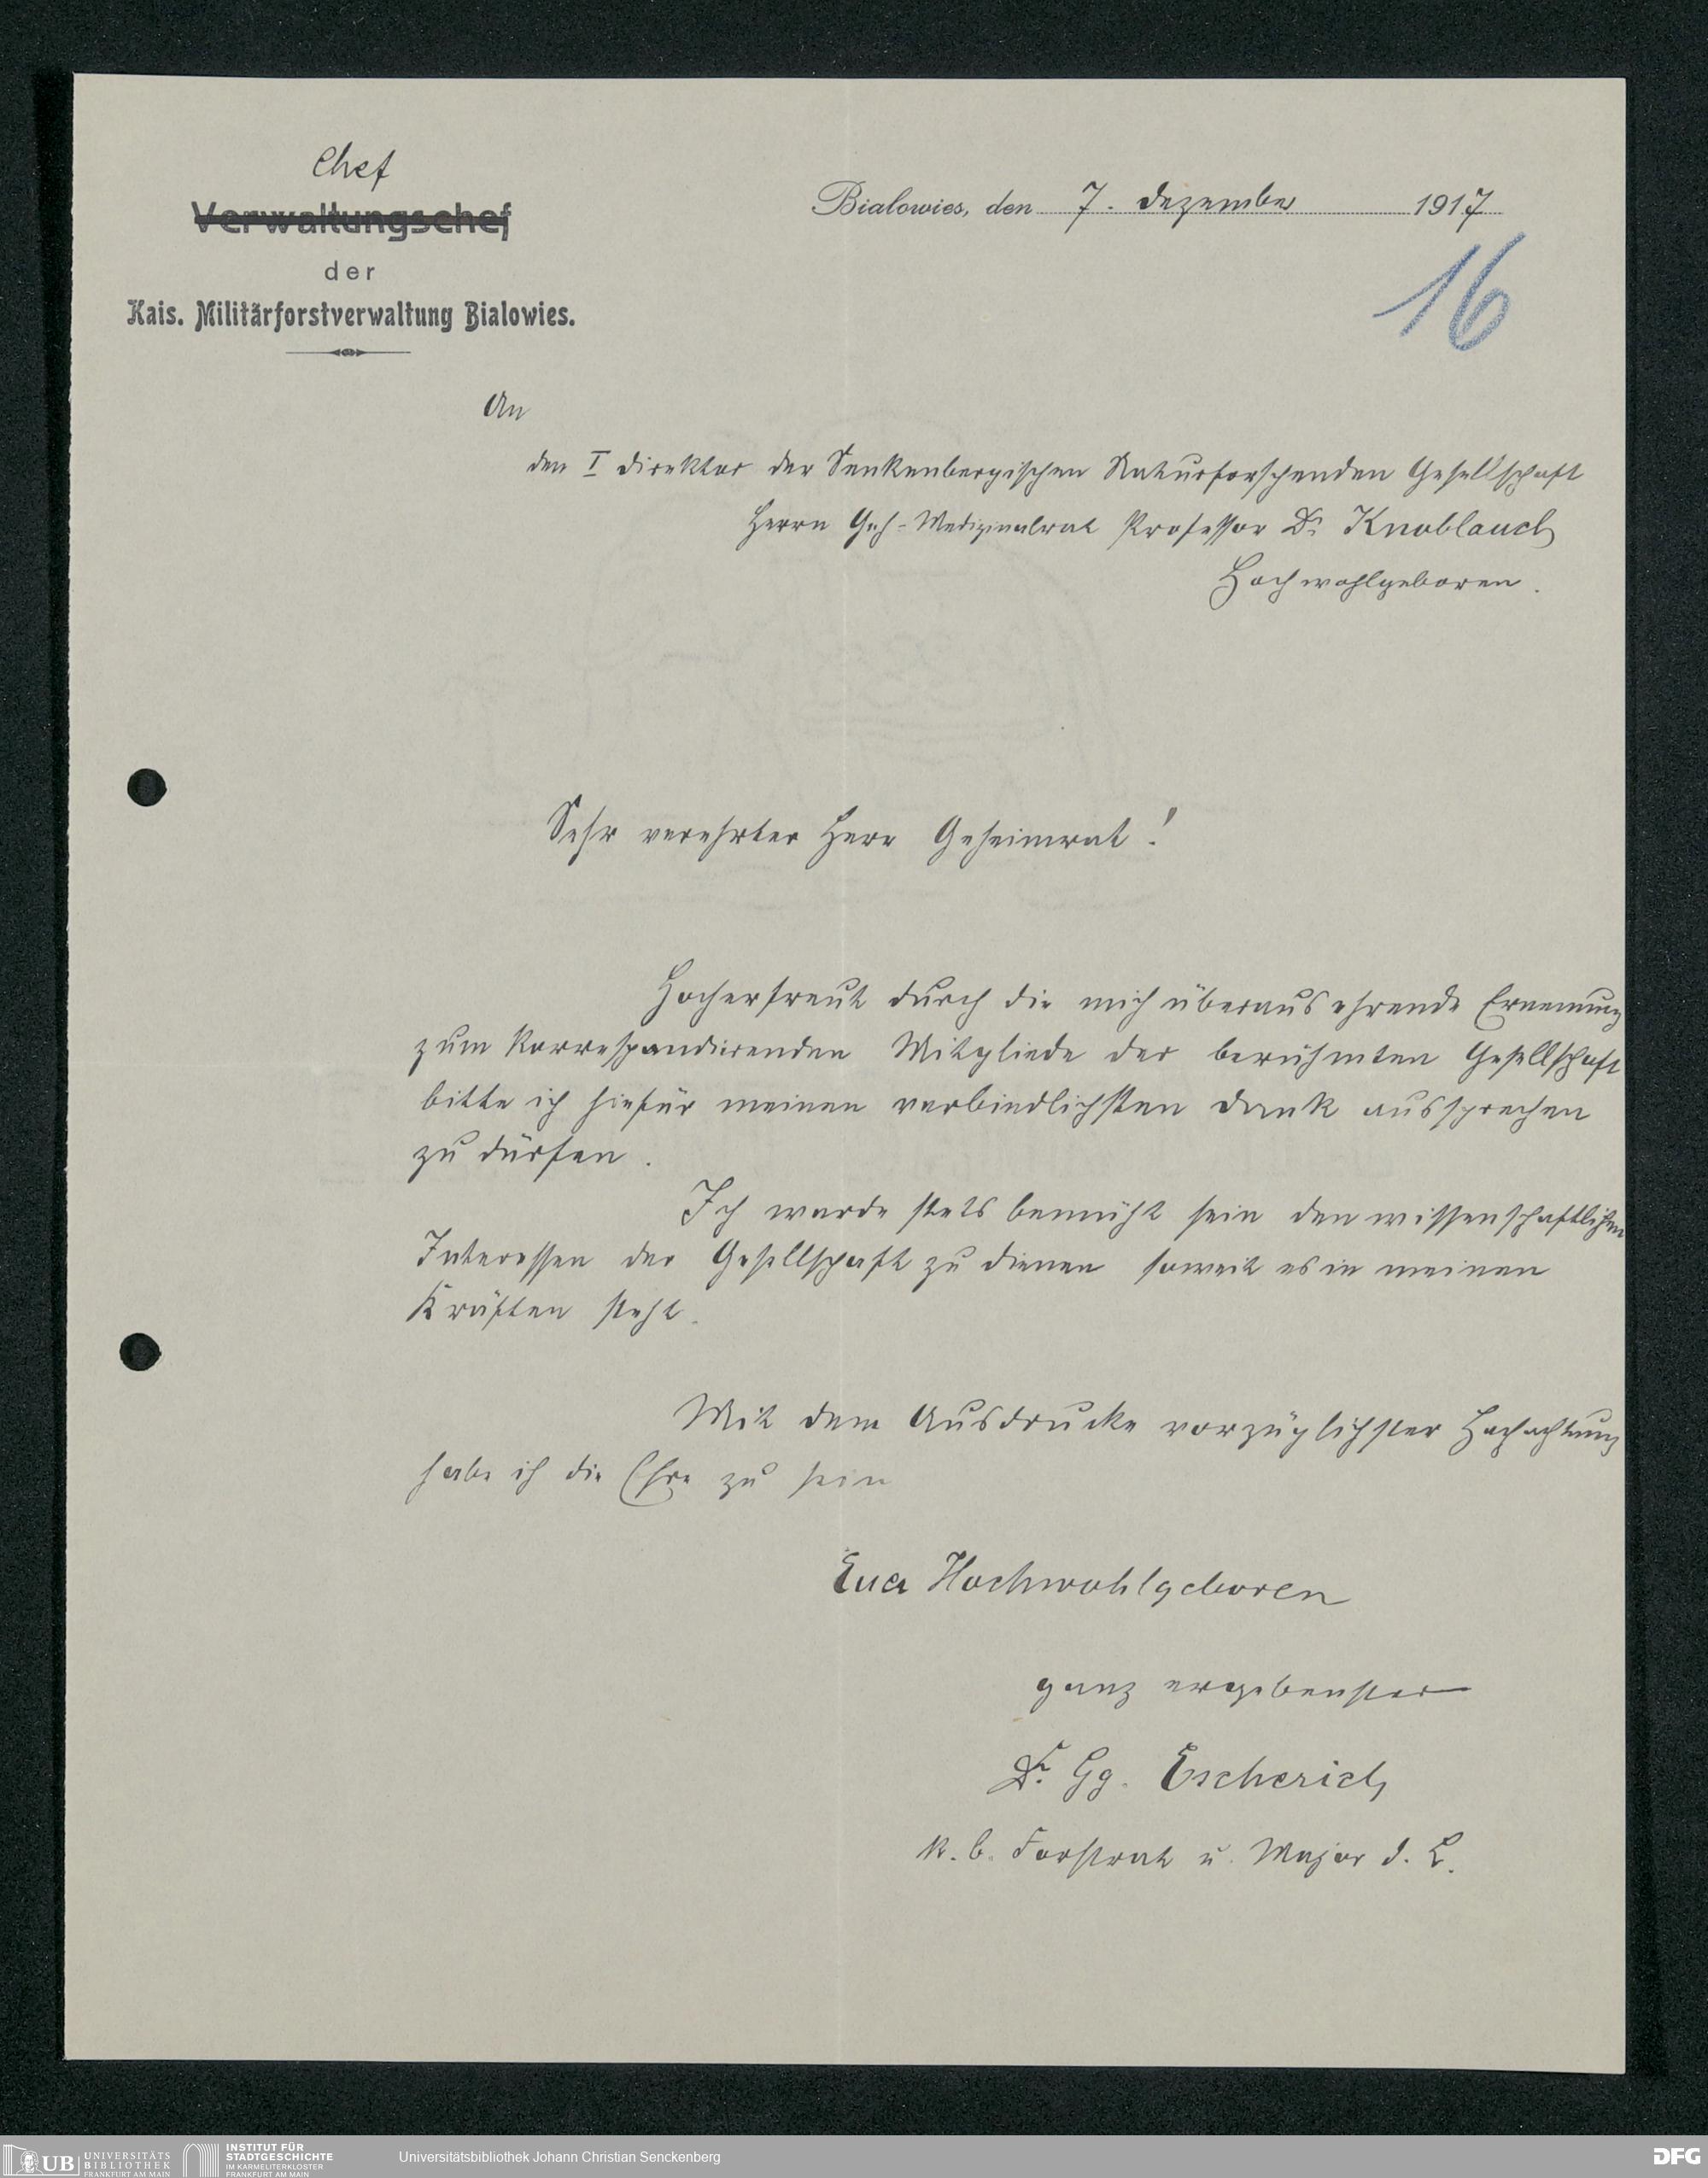 Chef
Verwaltungschef
der
Kais. Militärforstverwaltung Bialowies.
Bialowies, den 7. Dezember 1917
16
An
den I Direktor der Senkenbergischen Naturforschenden Gesellschaft
Herrn Geh-Medizinalrat Professor Dr. Knoblauch
Hochwohlgeboren.
Sehr verehrter Herr Geheimrat!
Hocherfreut durch die mich überaus ehrende Ernennung
zum korrespondierenden Mitgliede der berühmten Gesellschaft
bitte ich hiefür meinen verbindlichsten Dank aussprechen
zu dürfen.
Ich werde stets bemüht sein den wissenschaftlichen
Interessen der Gesellschaft zu dienen soweit es in meinen
Kräften steht.
Mit dem Ausdrucke vorzüglichster Hochachtung
habe ich die Ehre zu sein
Euer Hochwohlgeboren
ganz ergebenster
Dr. Gg. Escherich
k. b. Forstrat u. Major d. L.
UB UNIVERSITÄTS
BIBLIOTHEK
FRANKFURT AM MAIN
INSTITUT FÜR
STADTGESCHICHTE
IM KARMELITERKLOSTER
FRANKFURT AM MAIN
Universitätsbibliothek Johann Christian Senckenberg
DFG